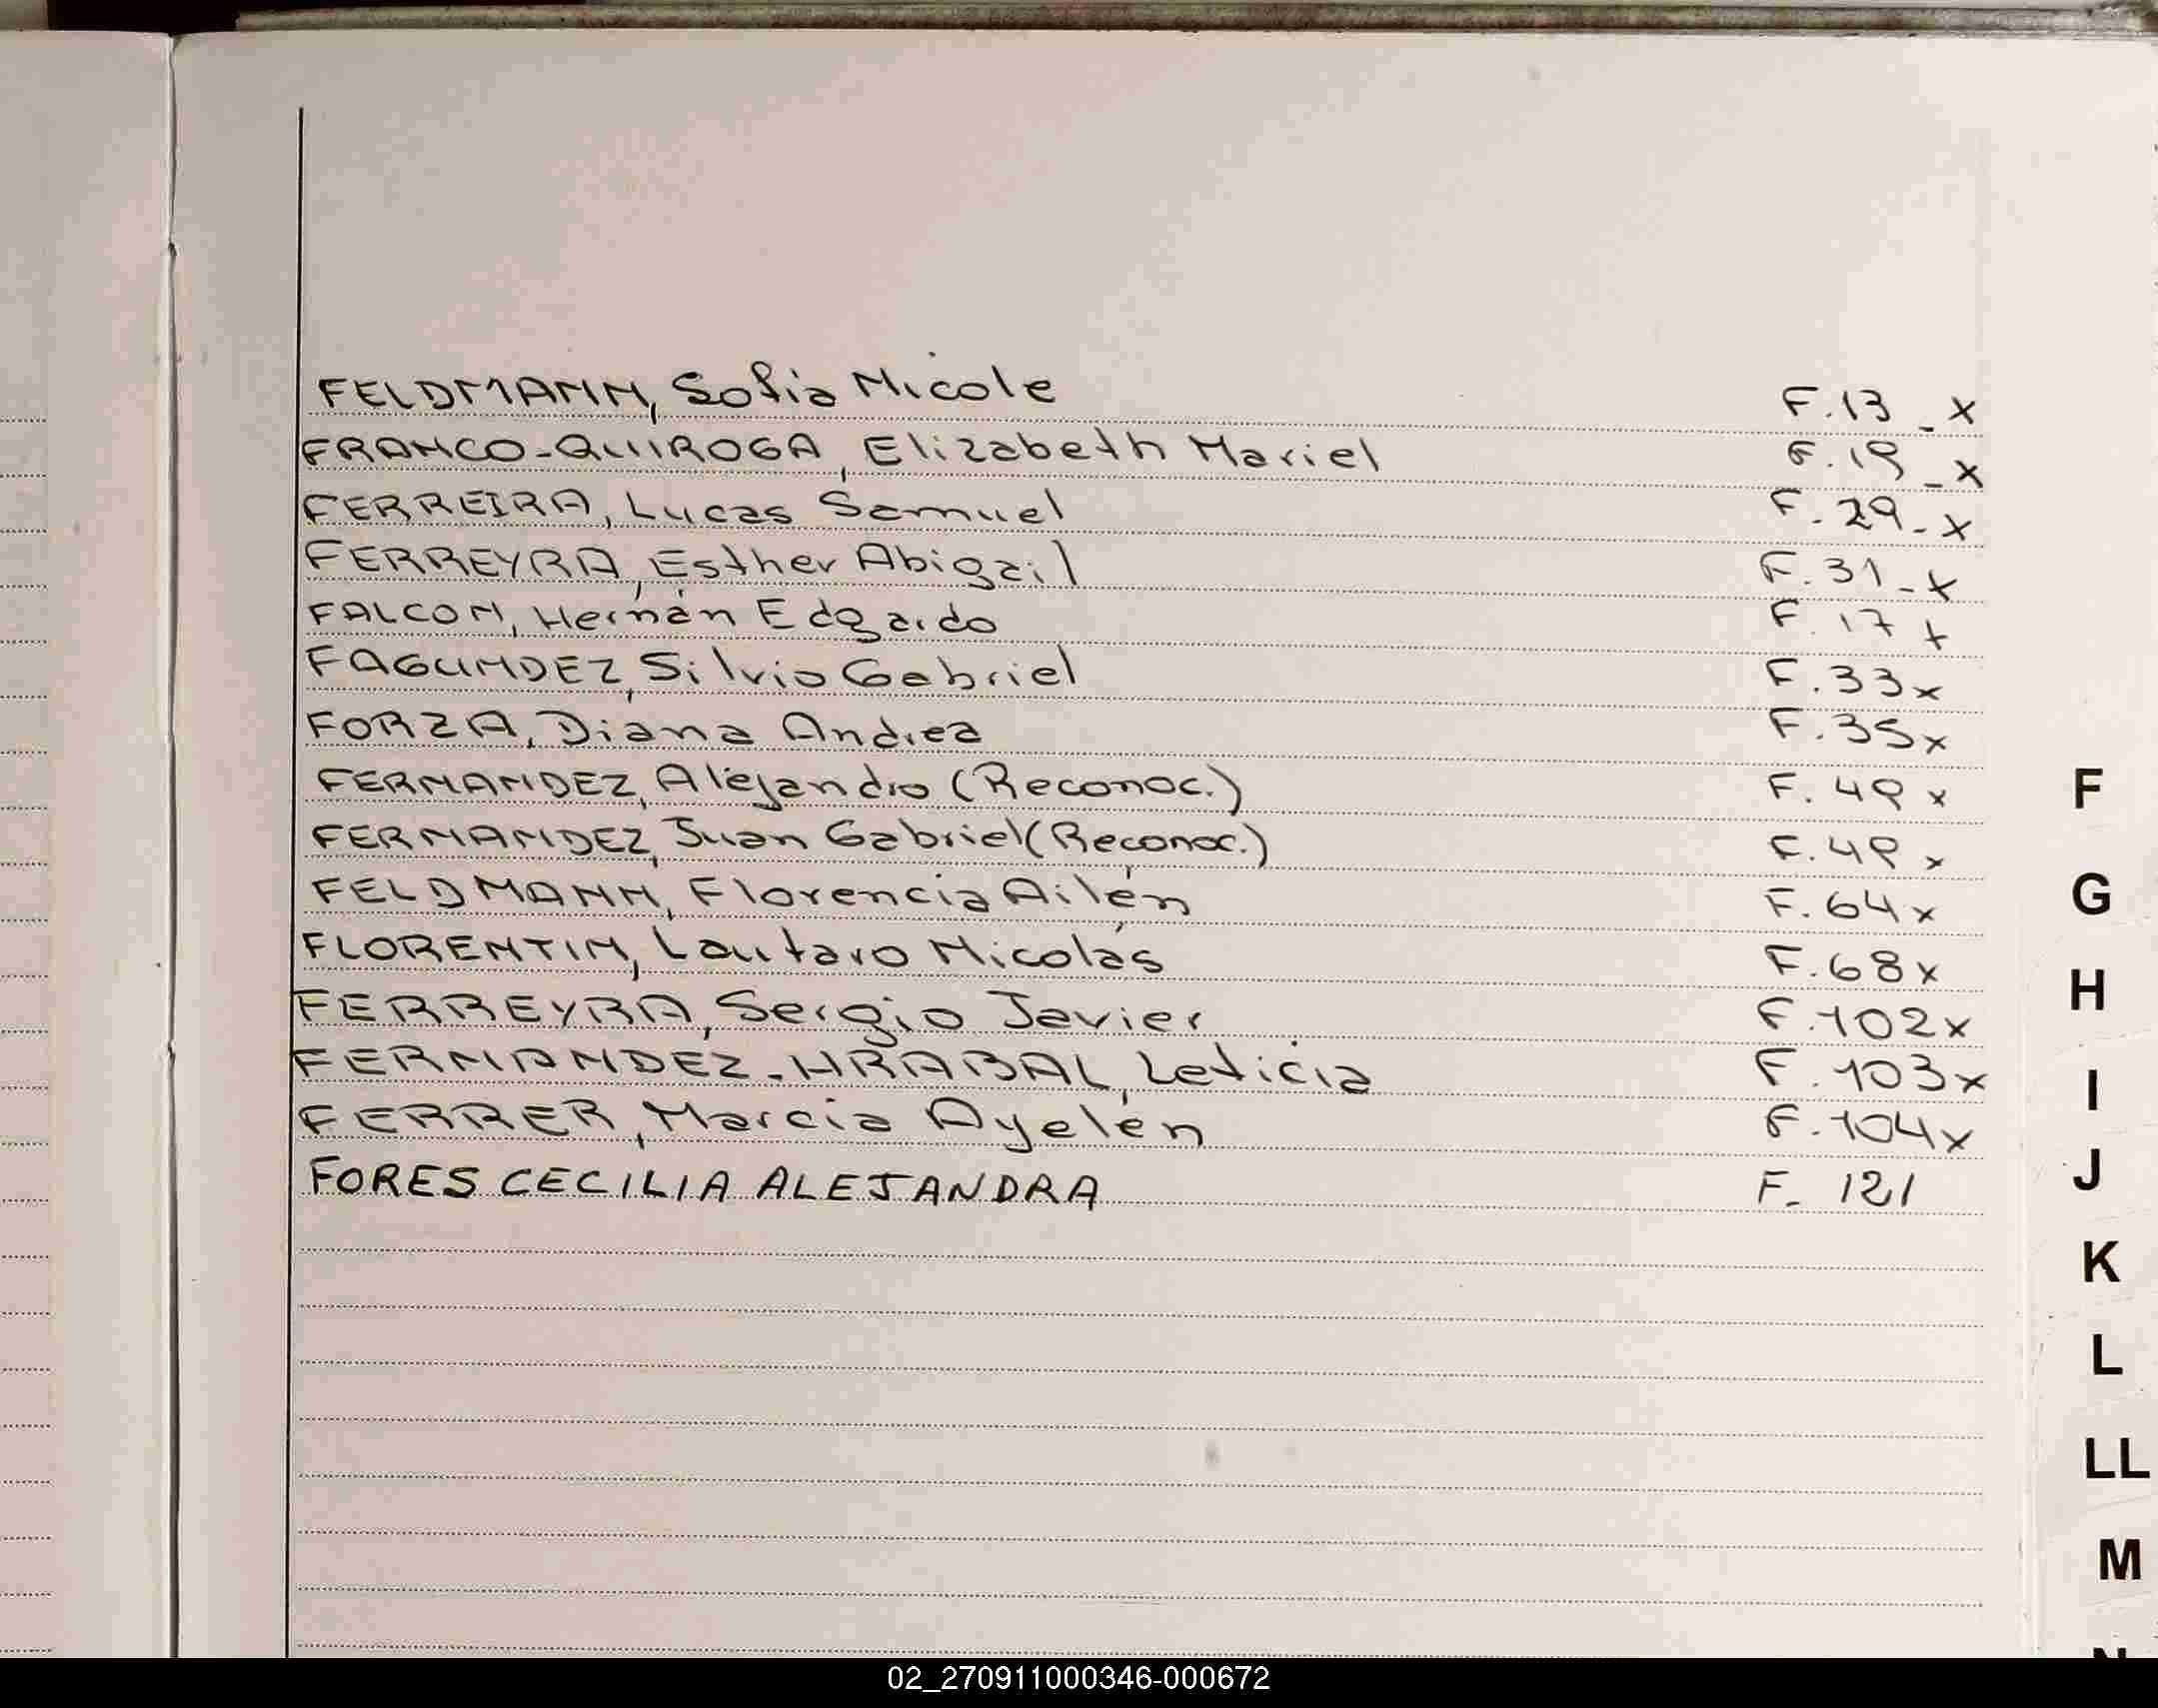 FELDMANN, Sofia Nicole F.13_x
FRANCO-QUIROGA, Elizabeth Mariel F.19_x
FERREIRA, Lucas Samuel F.29-x
FERREYRA, Esther Abigail F.31-x
FALCON, Hernán Edgardo F.17 x
FAGUNDEZ, Silvio Gabriel F.33x
FORZA, Diana Andrea F.35x
FERNANDEZ, Alejandro (Reconoc.) F.49 x
FERNANDEZ, Juan Gabriel (Reconoc.) F.49 x
FELDMANN, Florencia Ailén F.64x
FLORENTIN, Lautaro Nicolás F.68x
FERREYRA, Sergio Javier F.102x
FERNANDEZ-HRABAL, Leticia F.103x
FERRER, Marcia Ayelén F.104x
FORES CECILIA ALEJANDRA F. 121
F
G
H
I
J
K
L
LL
M
N
02_270911000346-000672